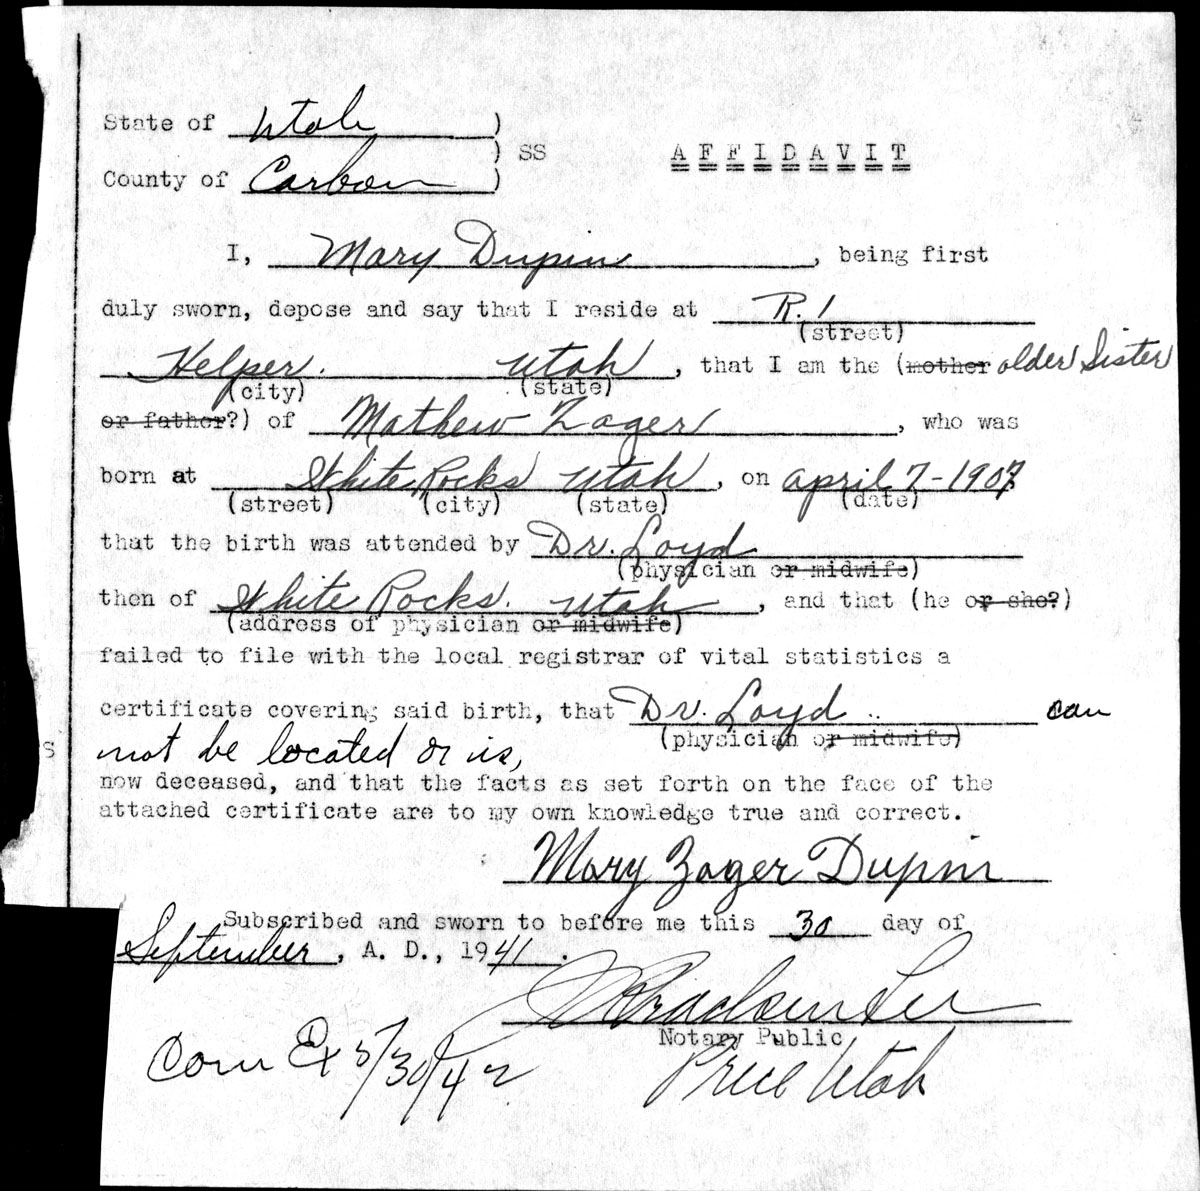 State of Utah )
) SS AFFIDAVIT
County of Carbon )
I, Mary Dupin, being first
duly sworn, depose and say that I reside at R. 1
(street)
Helper. Utah, that I am the (mother older Sister
(city) (state)
or father?) of Mathew Zager, who was
born at White Rocks Utah, on april 7-1907
(street) (city) (state) (date)
that the birth was attended by Dr. Loyd
(physician or midwife)
then of White Rocks. Utah, and that (he or she?)
(address of physician or midwife)
failed to file with the local registrar of vital statistics a
certificate covering said birth, that Dr. Loyd can
(physician or midwife)
S not be located or is,
now deceased, and that the facts as set forth on the face of the
attached certificate are to my own knowledge true and correct.
Mary Zager Dupin
Subscribed and sworn to before me this 30 day of
September, A. D., 1941.
J Bracken Lee
Notary Public
Com Ex 5/30/42 Price Utah